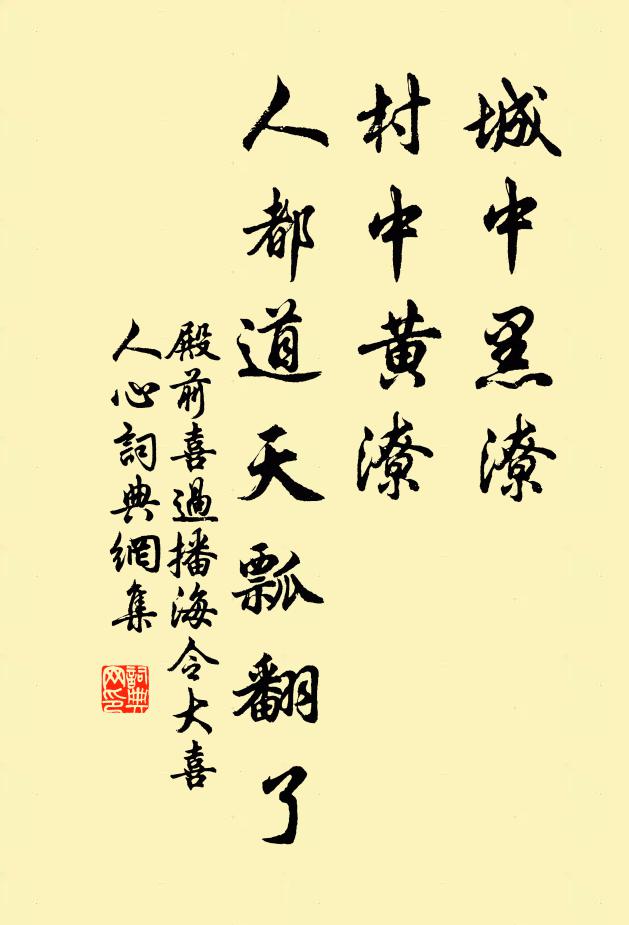 城中黑潦
村中黄潦
人都道天瓢翻了
殿前喜過播海令大喜
人心詞典網集
詞典
网印